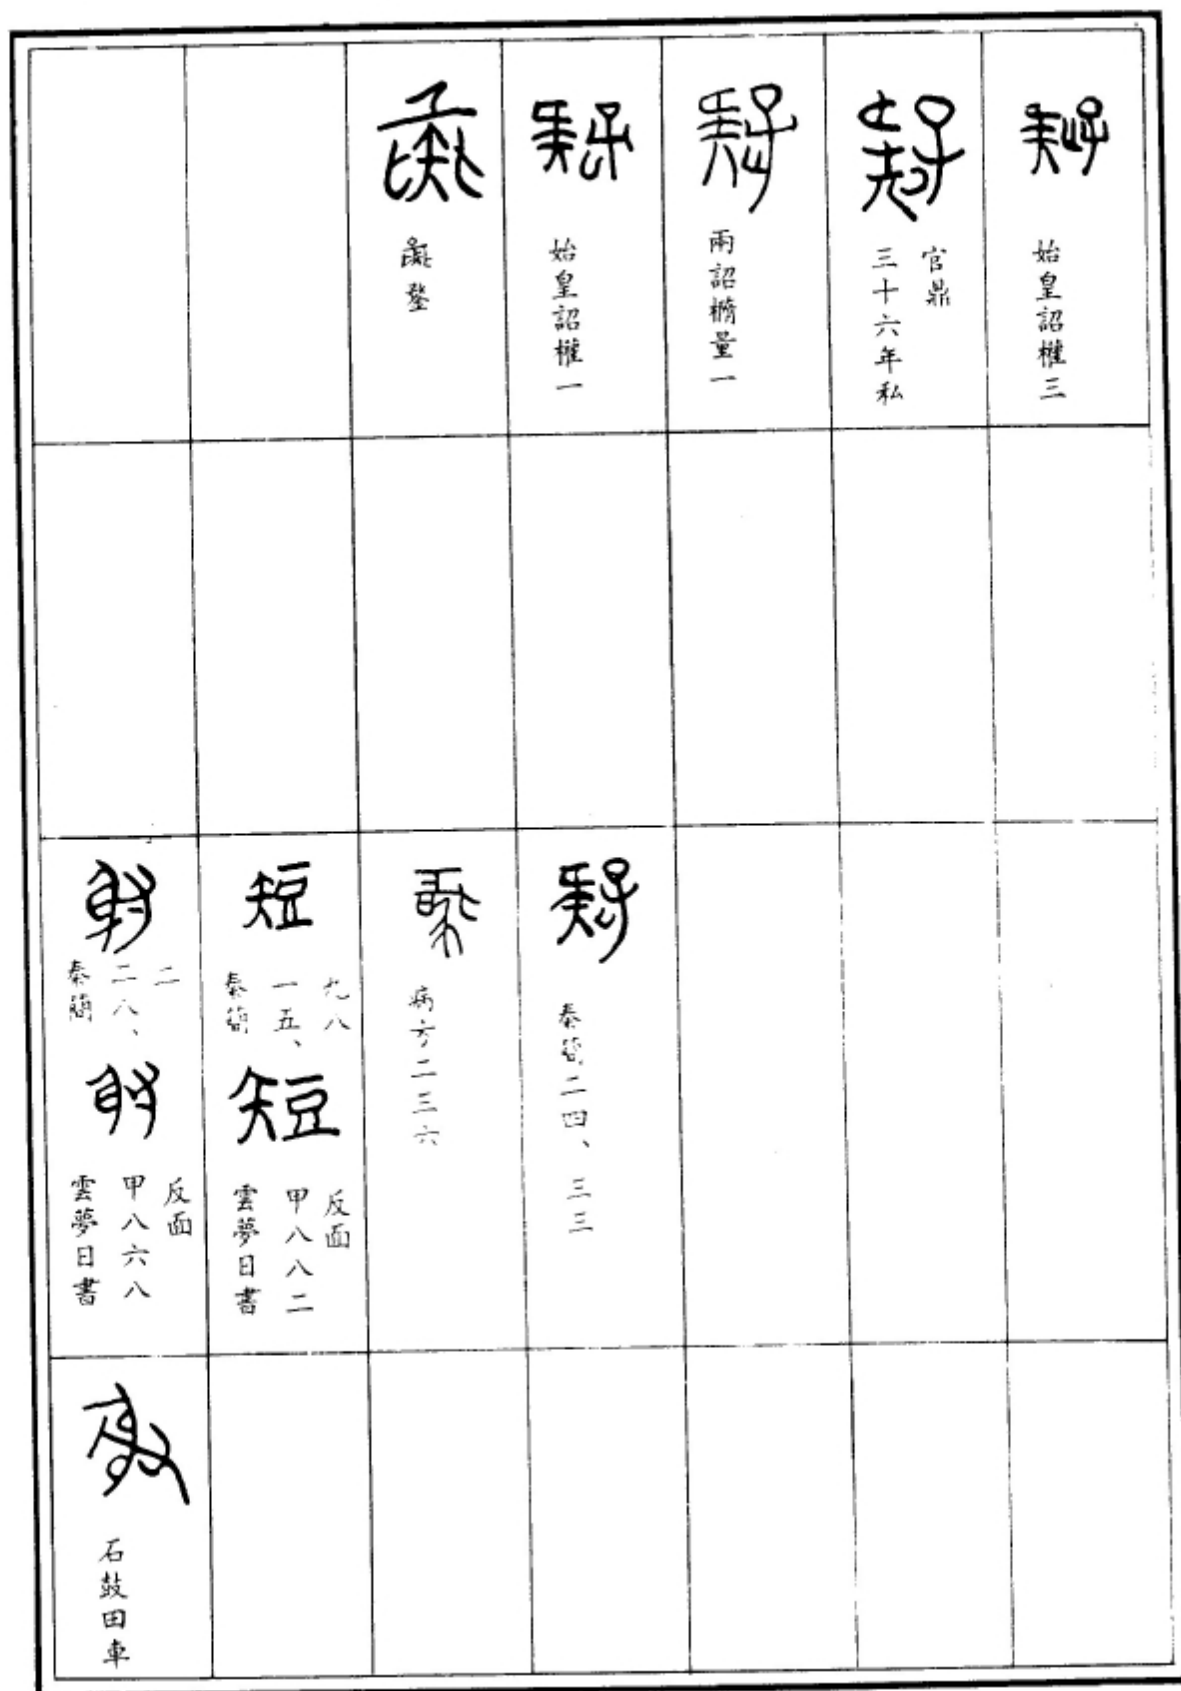 疑
始皇詔權三
疑
三十六年私
官鼎
疑
兩詔橢量一
疑
始皇詔權一
疑
秦簡二四、三三
病方二三六
短
秦簡
一五、
九八
短
雲夢日書
甲八八二
反面
射
秦簡
二八、
二
射
雲夢日書
甲八六八
反面
石鼓田車